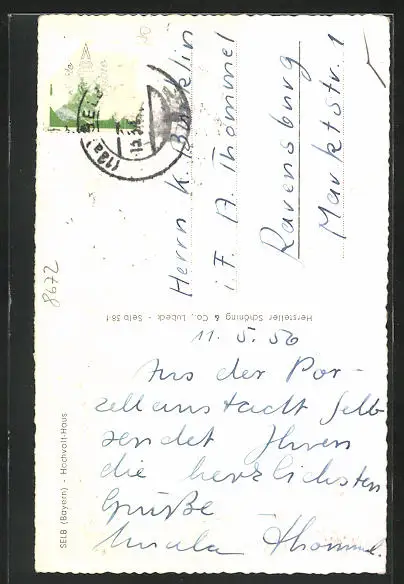 SELB (Bayern) - Hochvolt-Haus
8672
11. 5. 56
Aus der Por-
zellanstadt Selb
sendet Ihnen
die herzlichsten
Grüße
Ursula Thommel.
Hersteller Schöning & Co., Lübeck - Selb 38-1
(13a) SELB
Herrn K. Bürklin
i. F. A. Thommel
Ravensburg
Marktstr. 1